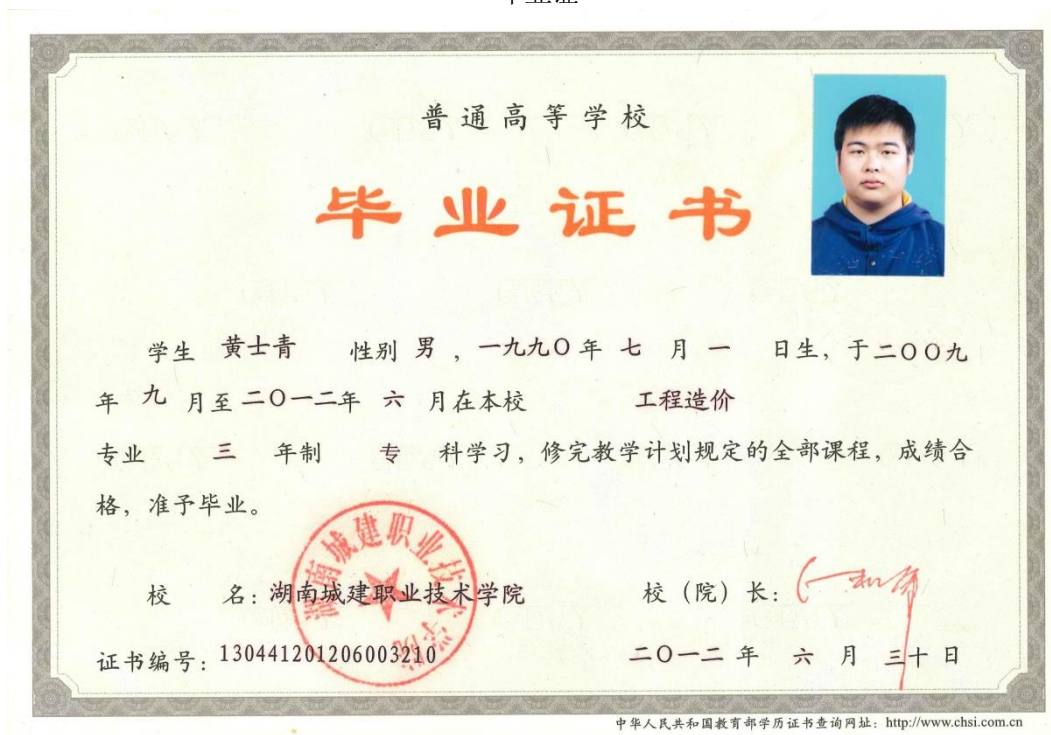 毕业证
普通高等学校
毕业证书
学生 黄士青 性别 男 ，一九九〇年 七 月 一 日生，于二〇〇九
年 九 月至 二〇一二年 六 月在本校 工程造价
专业 三 年制 专 科学习，修完教学计划规定的全部课程，成绩合
格，准予毕业。
校 名：湖南城建职业技术学院
校（院）长：
湖南城建职业技术学院
证书编号：130441201206003210
二〇一二 年 六 月 三十 日
中华人民共和国教育部学历证书查询网址：http://www.chsi.com.cn